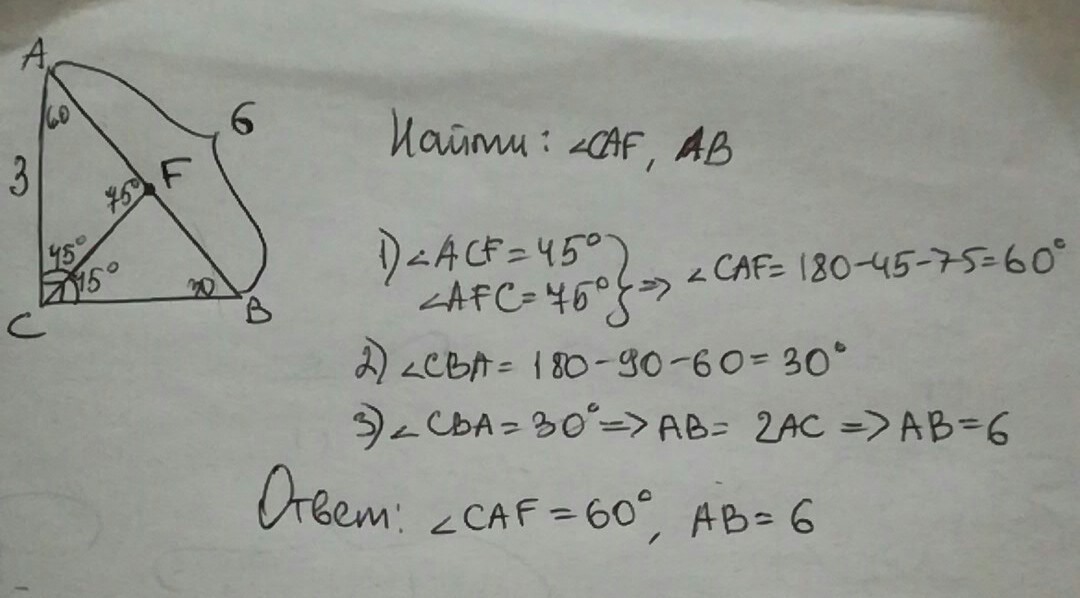 A
60
6
3
F
75°
45°
45°
30
C
B
Найти: ∠CAF, AB
1) ∠ACF = 45°
∠AFC = 75° } => ∠CAF = 180-45-75 = 60°
2) ∠CBA = 180-90-60 = 30°
3) ∠CBA = 30° => AB = 2AC => AB = 6
Ответ: ∠CAF = 60°, AB = 6